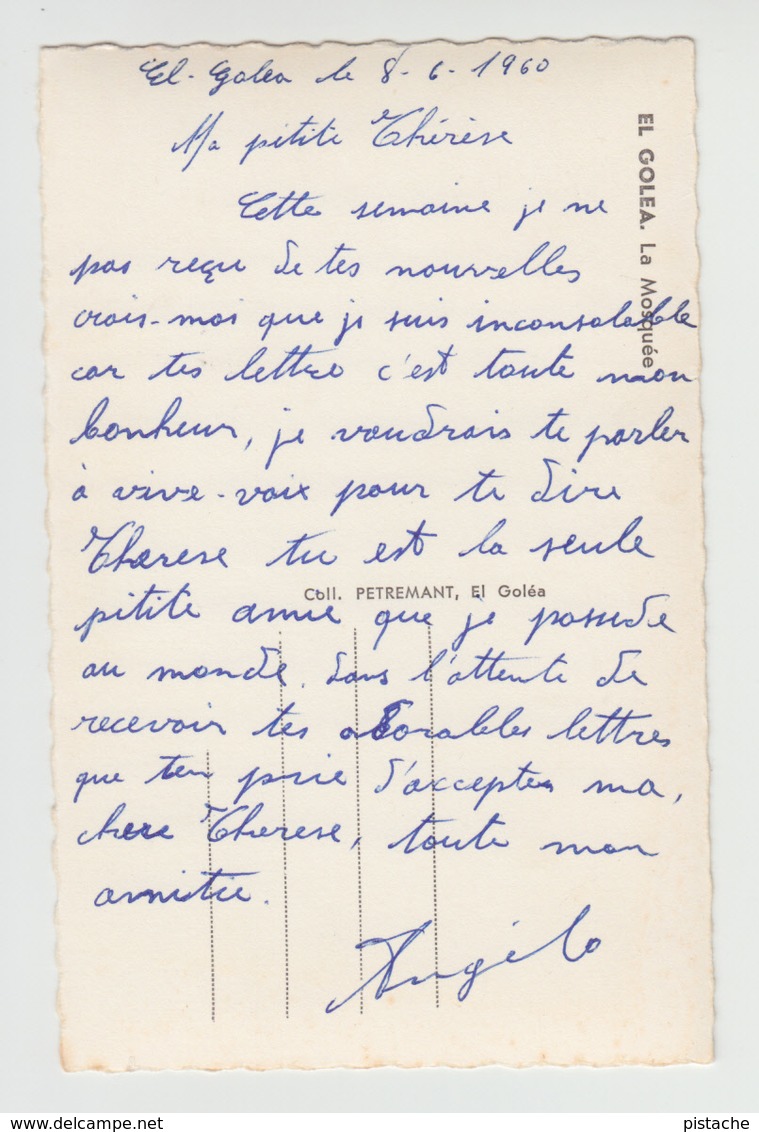 El-Golea le 8-6-1960
Ma pitite Thérèse
Cette semaine je ne
pas reçu de tes nouvelles
crois-moi que je suis inconsolable
car tes lettre c'est toute mon
bonheur, je voudrais te parler
à vive-voix pour te dire
Therese tu est la seule
pitite amie que je possede
au monde. dans l'attente de
recevoir tes adorables lettres
que ten prie d'accepter ma,
chere Therese, toute mon
amitie.
Angélo
EL GOLEA. La Mosquée
Coll. PETREMANT, El Goléa
pistache